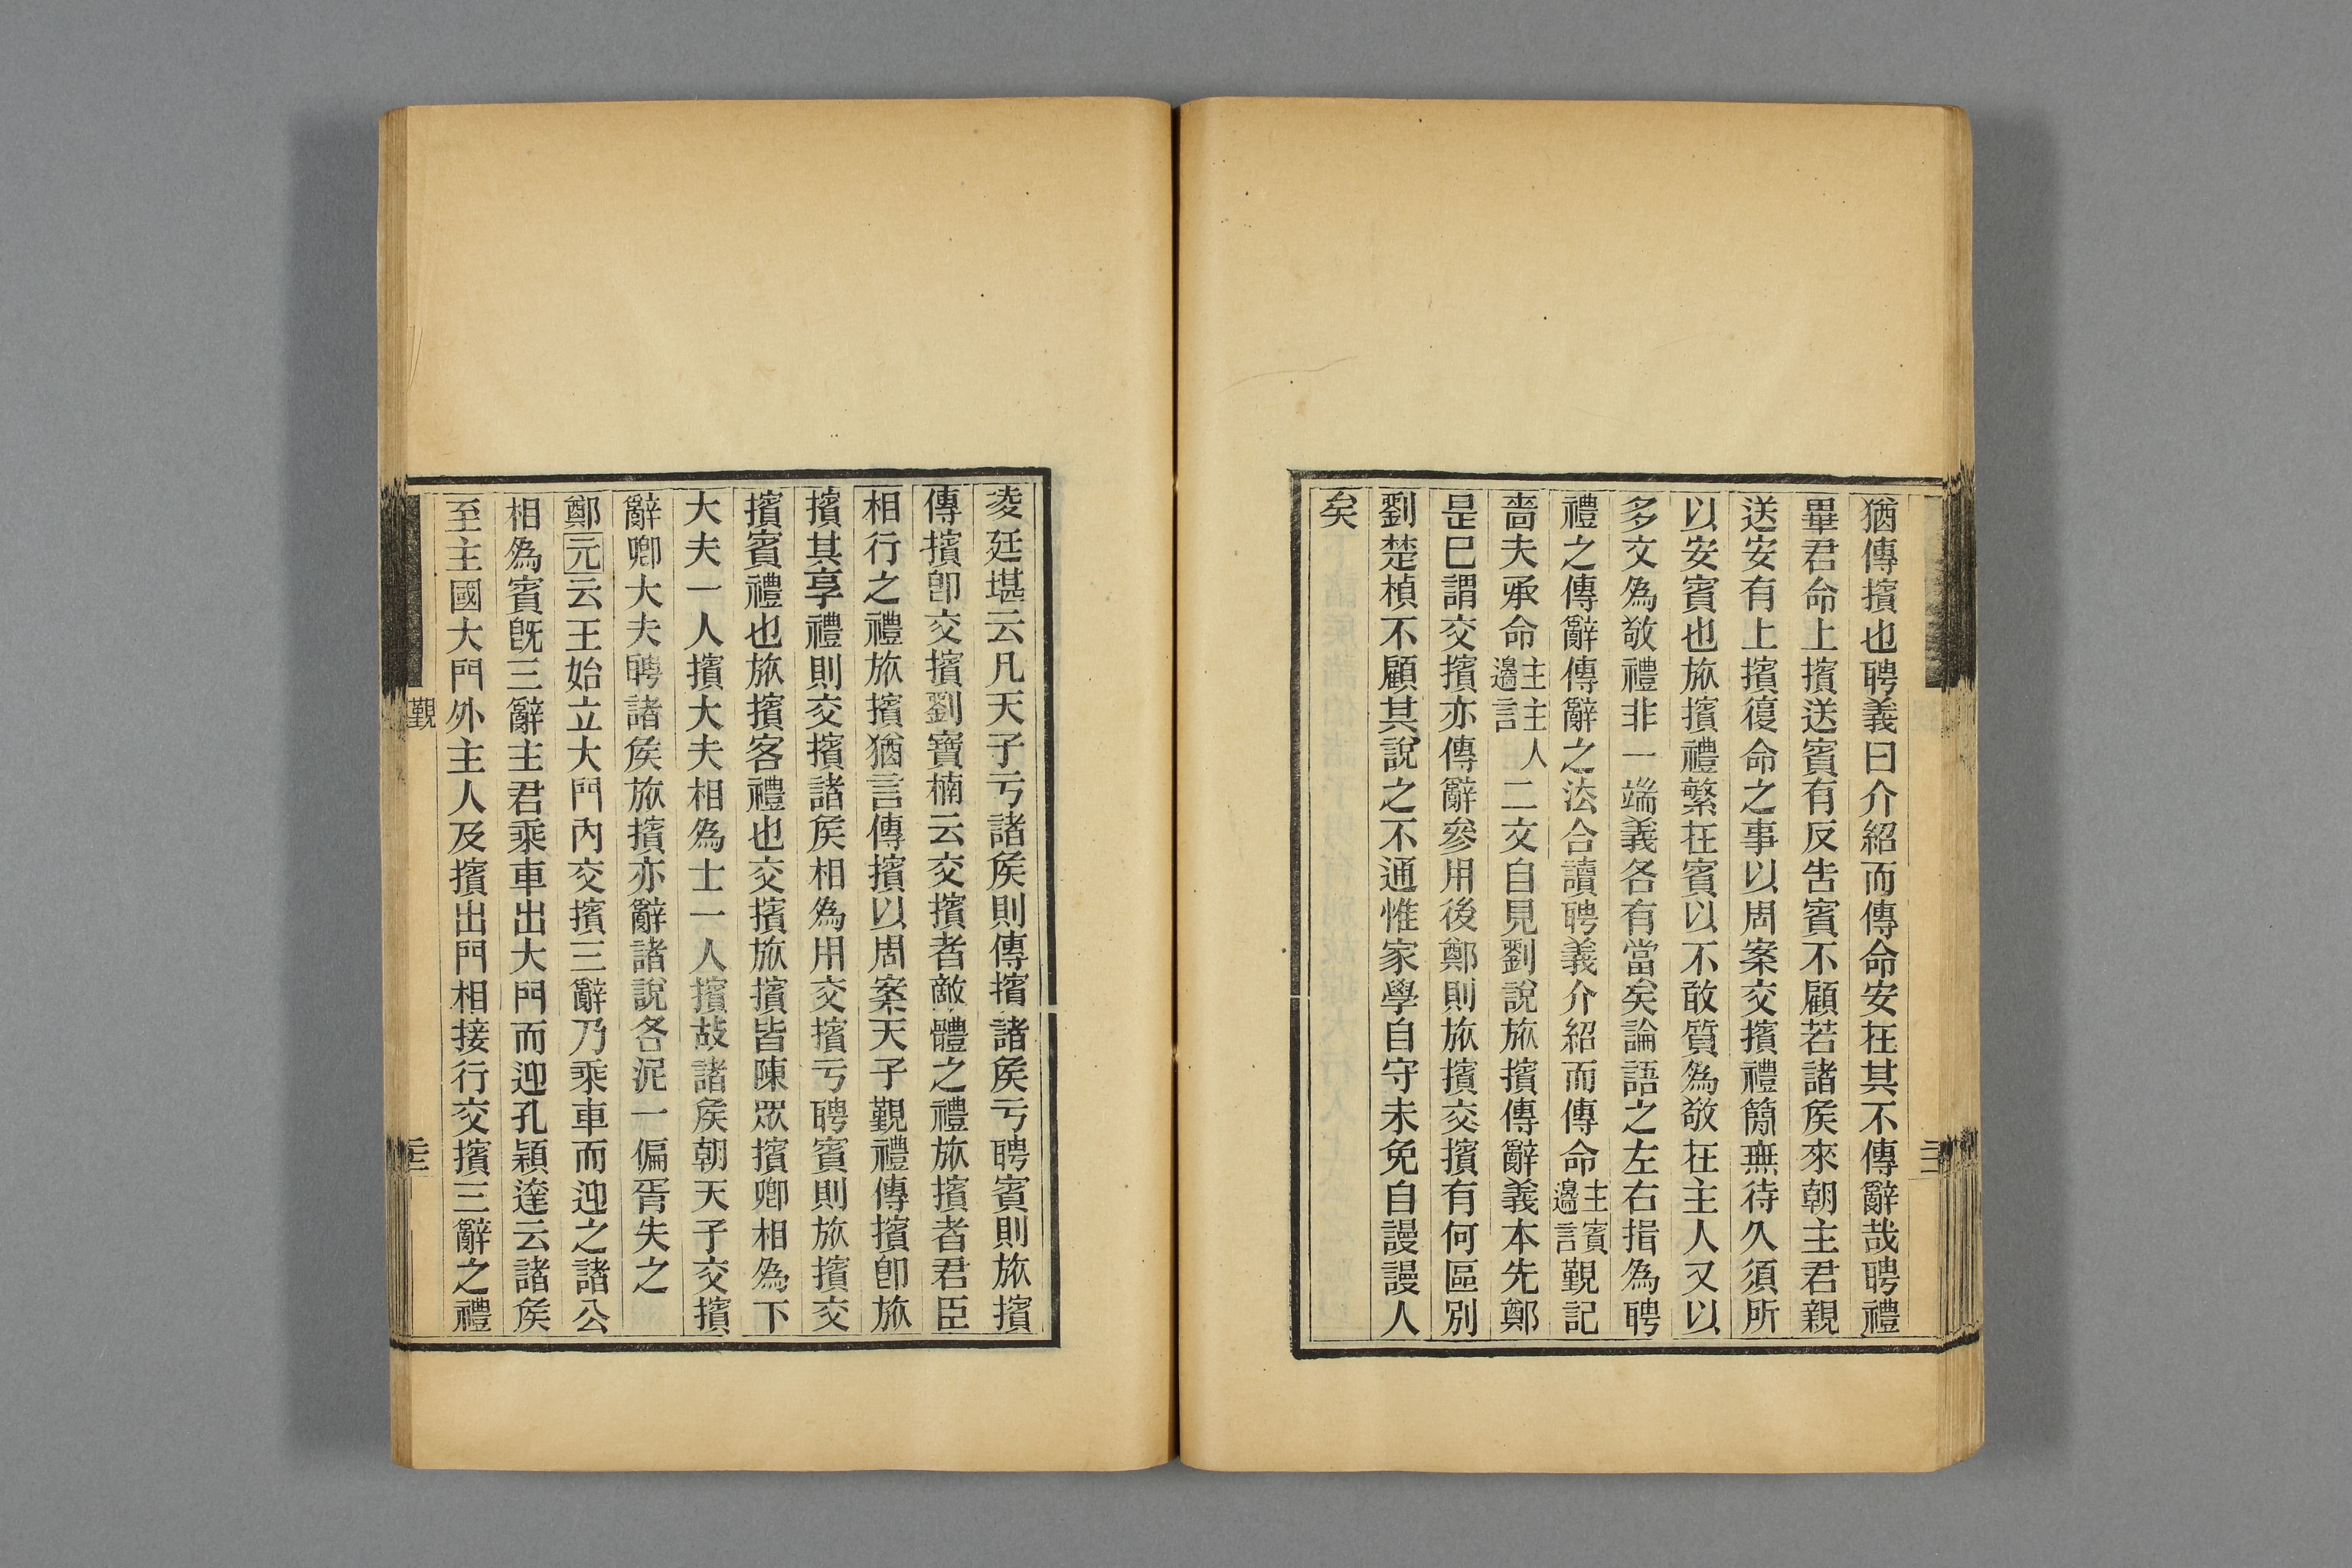 猶傳擯也聘義曰介紹而傳命安在其不傳辭哉聘禮
畢君命上擯送賓有反告賓不顧若諸矦來朝主君親
送安有上擯復命之事以周案交擯禮簡無待久須所
以安賓也旅擯禮繁在賓以不敢質為敬在主人又以
多文為敬禮非一端義各有當矣論語之左右指為聘
禮之傳辭傳辭之法合讀聘義介紹而傳命主賓邊言覲記
嗇夫承命主主人邊言二文自見劉說旅擯傳辭義本先鄭
是已謂交擯亦傳辭參用後鄭則旅擯交擯有何區別
劉楚楨不顧其說之不通惟家學自守未免自謾謾人
矣
三二
淩廷堪云凡天子亏諸矦則傳擯諸矦亏聘賓則旅擯
傳擯卽交擯劉寶楠云交擯者敵體之禮旅擯者君臣
相行之禮旅擯猶言傳擯以周案天子覲禮傳擯卽旅
擯其享禮則交擯諸矦相為用交擯亏聘賓則旅擯交
擯賓禮也旅擯客禮也交擯旅擯皆陳眾擯卿相為下
大夫一人擯大夫相為士一人擯故諸矦朝天子交擯
辭卿大夫聘諸矦旅擯亦辭諸說各泥一偏胥失之
鄭元云王始立大門內交擯三辭乃乘車而迎之諸公
相為賓旣三辭主君乘車出大門而迎孔穎達云諸矦
至主國大門外主人及擯出門相接行交擯三辭之禮
覲